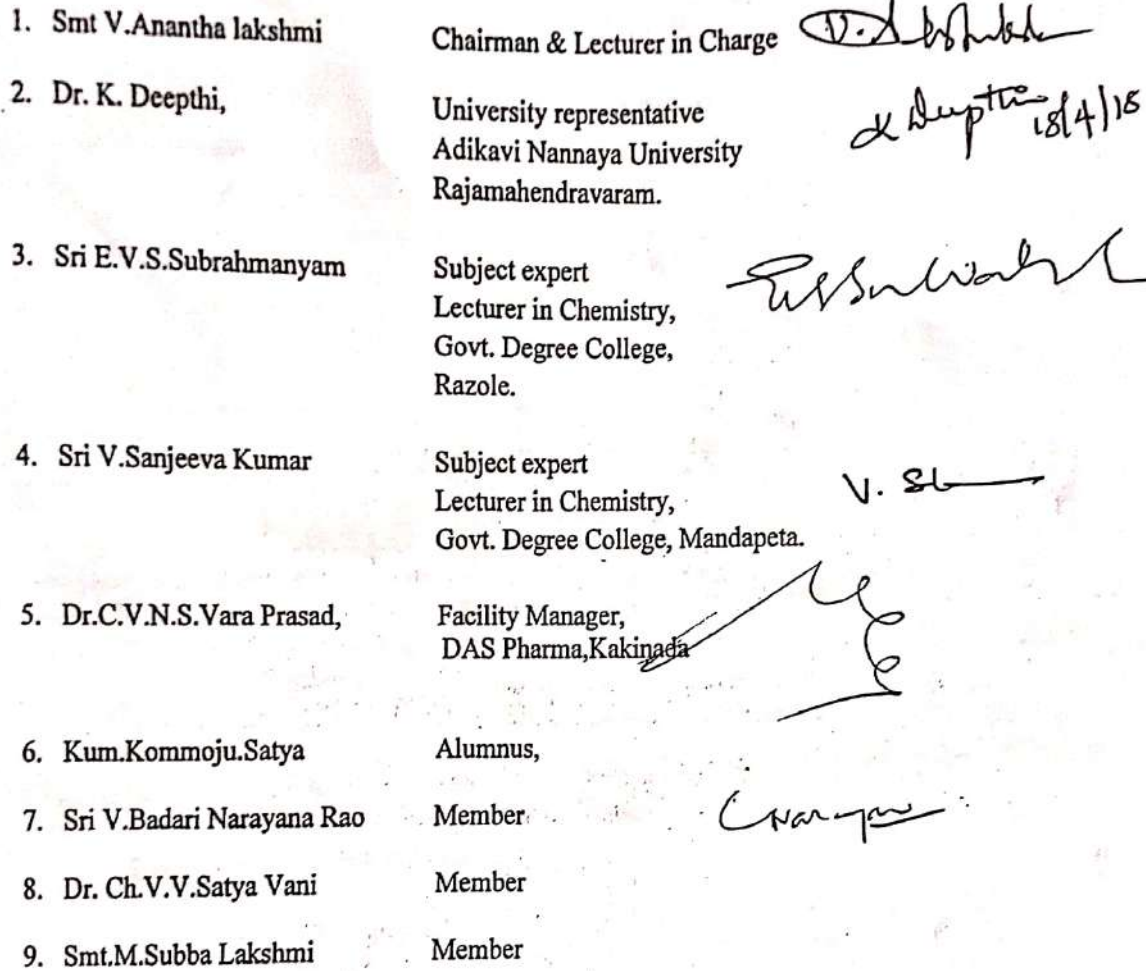 1. Smt V.Anantha lakshmi Chairman & Lecturer in Charge
2. Dr. K. Deepthi, University representative K Deepthi 18/4/18
Adikavi Nannaya University
Rajamahendravaram.
3. Sri E.V.S.Subrahmanyam Subject expert
Lecturer in Chemistry,
Govt. Degree College,
Razole.
4. Sri V.Sanjeeva Kumar Subject expert
Lecturer in Chemistry, V.
Govt. Degree College, Mandapeta.
5. Dr.C.V.N.S.Vara Prasad, Facility Manager,
DAS Pharma,Kakinada
6. Kum.Kommoju.Satya Alumnus,
7. Sri V.Badari Narayana Rao Member
8. Dr. Ch.V.V.Satya Vani Member
9. Smt.M.Subba Lakshmi Member